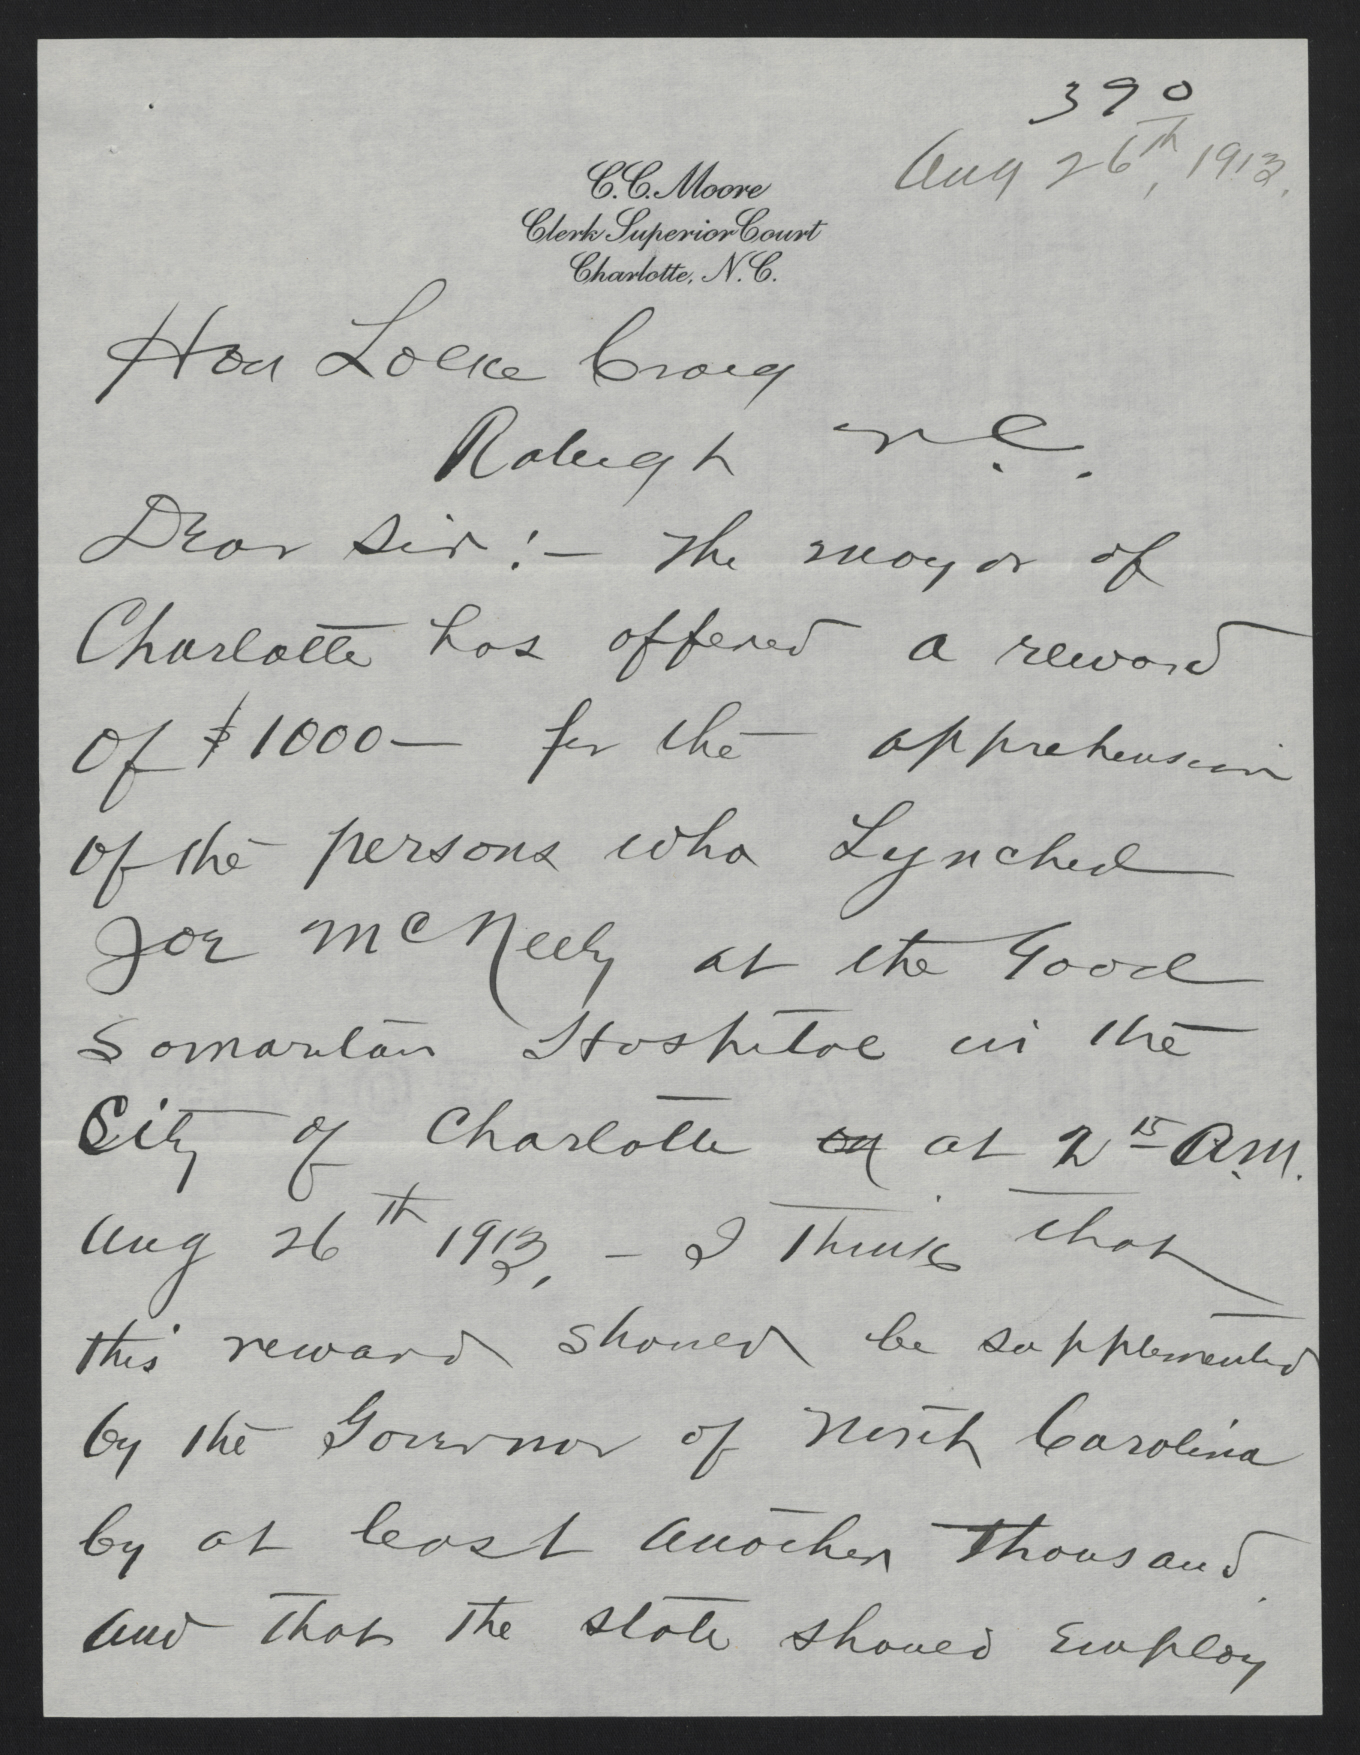 390
Aug 26th, 1913.
C.C. Moore
Clerk Superior Court
Charlotte, N.C.
Hon Locke Craig
Raleigh N.C.
Dear Sir:— The mayor of
Charlotte has offered a reward
of $1000— for the apprehension
of the persons who Lynched
Joe McNeely at the Good
Samaritan Hospital in the
City of Charlotte on at 2 15 A.M.
Aug 26th 1913, — I think that
this reward should be supplemented
by the Governor of North Carolina
by at least another thousand
and that the state should employ